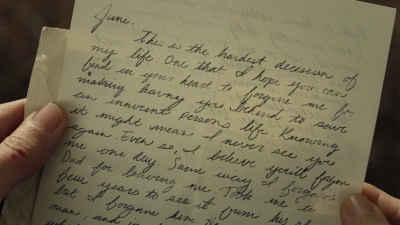 June.
This is the hardest decision of
my life One that I hope you can
find in your heart to forgive me for
making leaving you behind to save
an innocent person's life Knowing
it might mean I never see you
again Even so, I believe you'll forgive
me one day. Same way I forgave
Dad for leaving me Took me a
few years to see it from his
but I forgave him
man, and